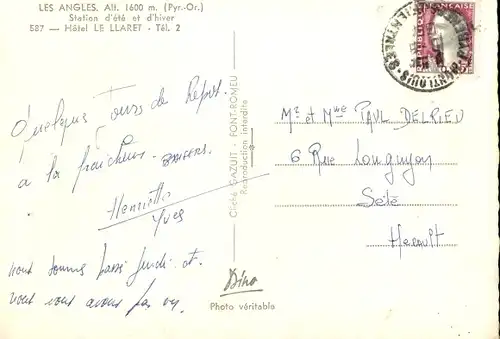 LES ANGLES. Alt. 1600 m. (Pyr.-Or.)
Station d'été et d'hiver
587 — Hôtel LE LLARET - Tél. 2
Quelques Jours de Repos.
a la fraîcheur. BAISERS.
Henriette
Yves
nous sommes passé Jeudi et
nous vous avons pas vu.
Cliché GAZUIT - FONT-ROMEU
Reproduction interdite
Dino
Photo véritable
Mr et Mme PAUL DELRIEU
6 Rue Longuyon
Sète
Herault